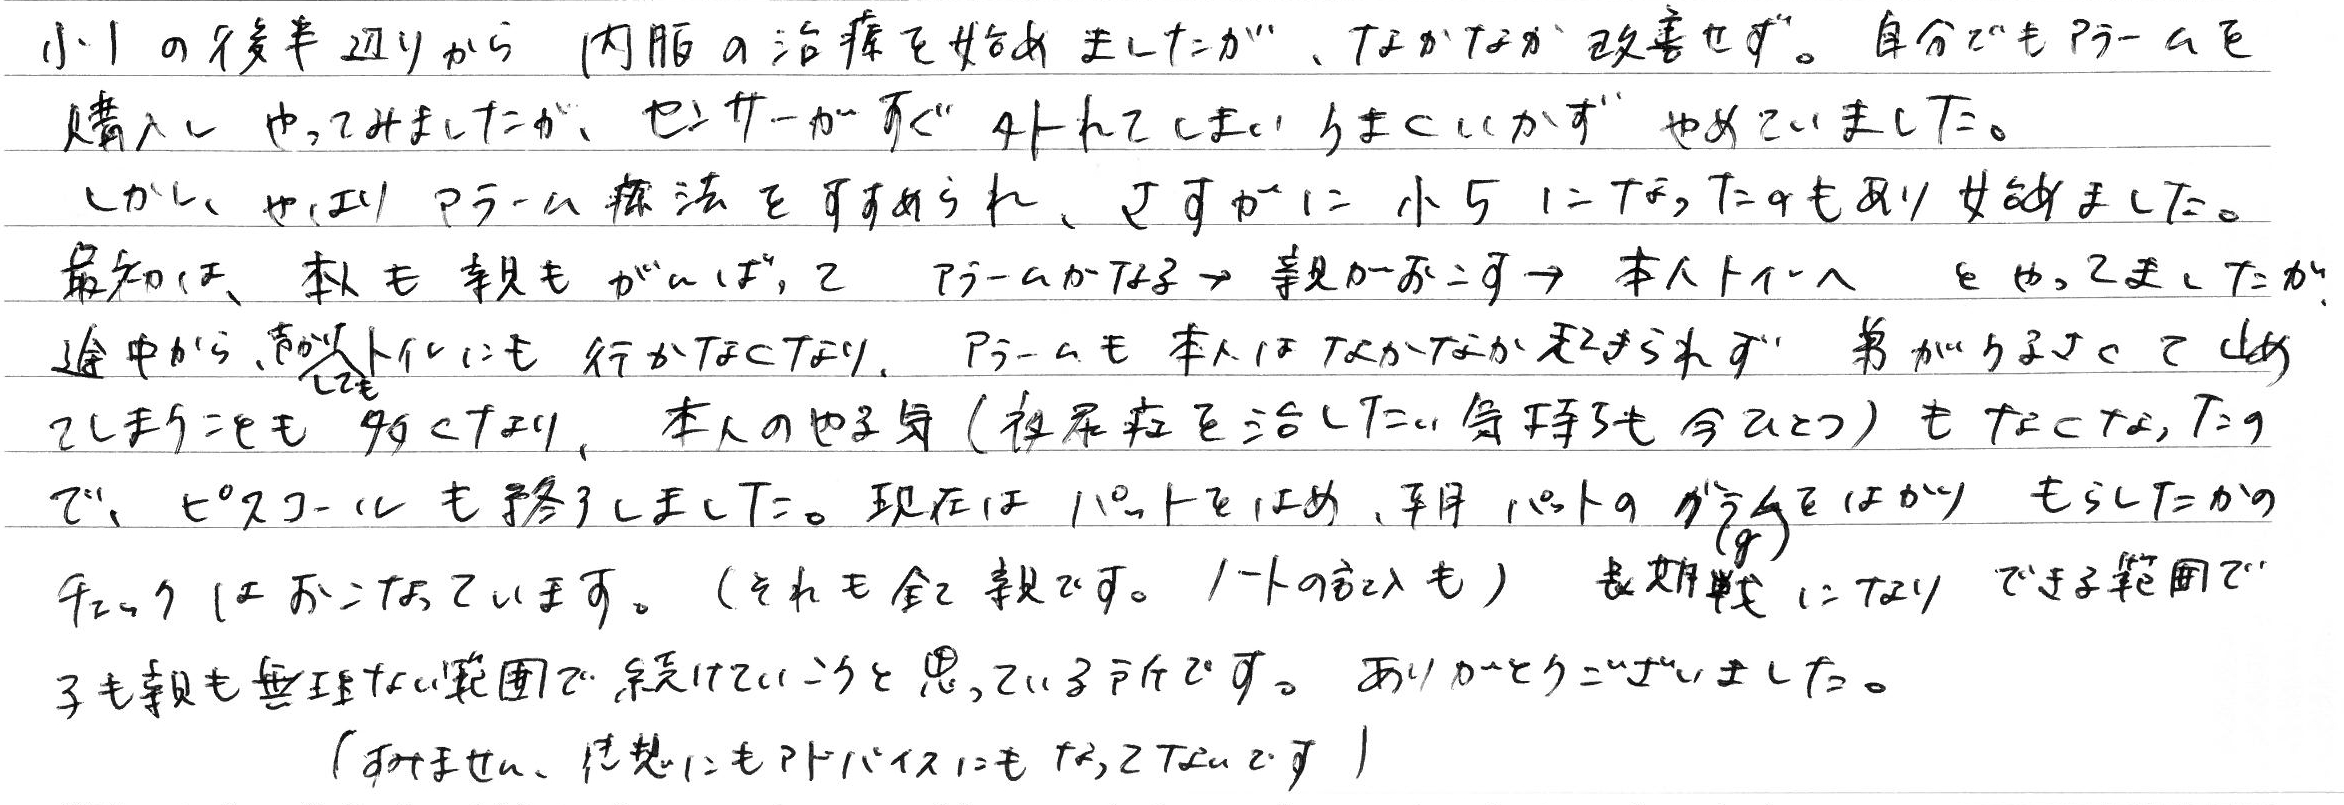 小1の後半辺りから 内服の治療を始めましたが、なかなか改善せず。自分でもアラームを
購入し やってみましたが、センサーがすぐ外れてしまいうまくいかず やめていました。
しかし、やはり アラーム療法をすすめられ、さすがに 小5になったのもあり始めました。
最初は、本人も親もがんばって アラームがなる→親がおこす→本人トイレへ をやってましたが、
途中から、声がけしてもトイレにも行かなくなり、アラームも本人はなかなか起きられず 弟がうるさくて止め
てしまうことも多くなり、本人のやる気(夜尿症を治したい気持ちも今ひとつ)もなくなったの
で、ピスコールも終了しました。現在はパットをはめ、朝パットのグラム(g)をはかり もらしたかの
チェックはおこなっています。(それも全て親です。ノートの記入も) 長期戦になり できる範囲で
子も親も無理ない範囲で続けていこうと思っている所です。ありがとうございました。
(すみません、感想にもアドバイスにもなってないです)